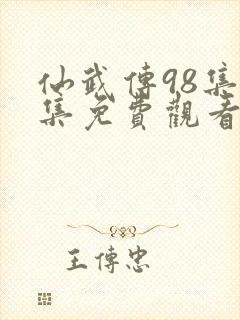 仙武傳98集
集免費觀看
王傳忠